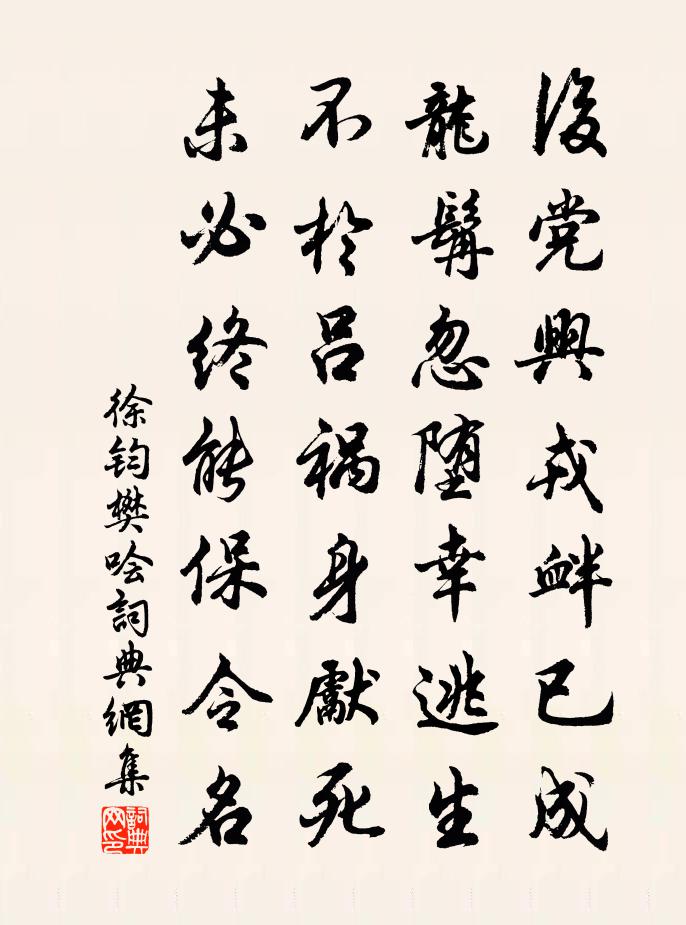 後党興戎衅已成
龍髯忽堕幸逃生
不於吕禍身獻死
未必终能保令名
徐钧樊哙詞典網集
詞典网印